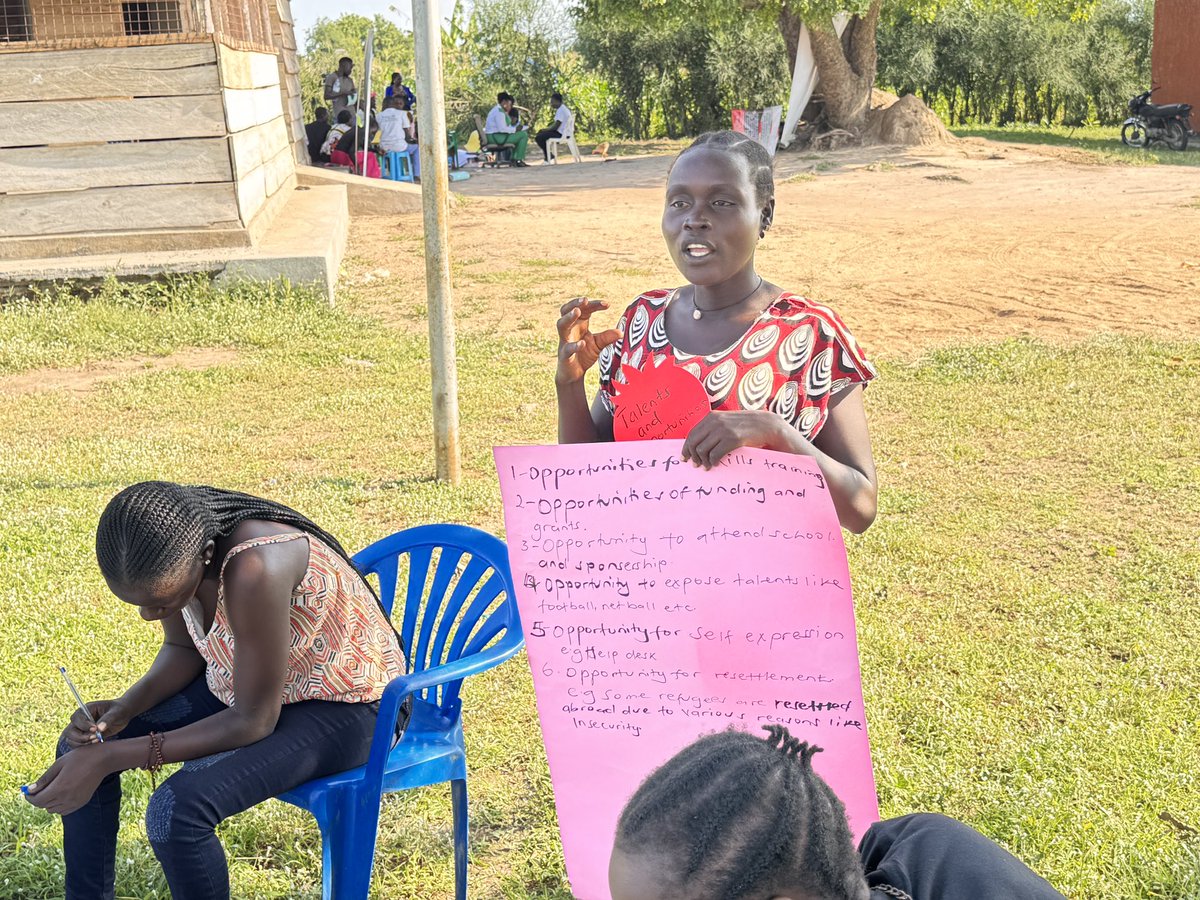 Talents
and
1-Opportunities for skills training
2-Opportunities of funding and
grants.
3-Opportunity to attend school.
and sponsership.
4 Opportunity to expose talents like
football, netball etc.
5-Opportunity for self expression
e.g Help desk
6. Opportunity for resettlements
e.g Some refugees are resettled
abroad due to various reasons like
Insecurity.